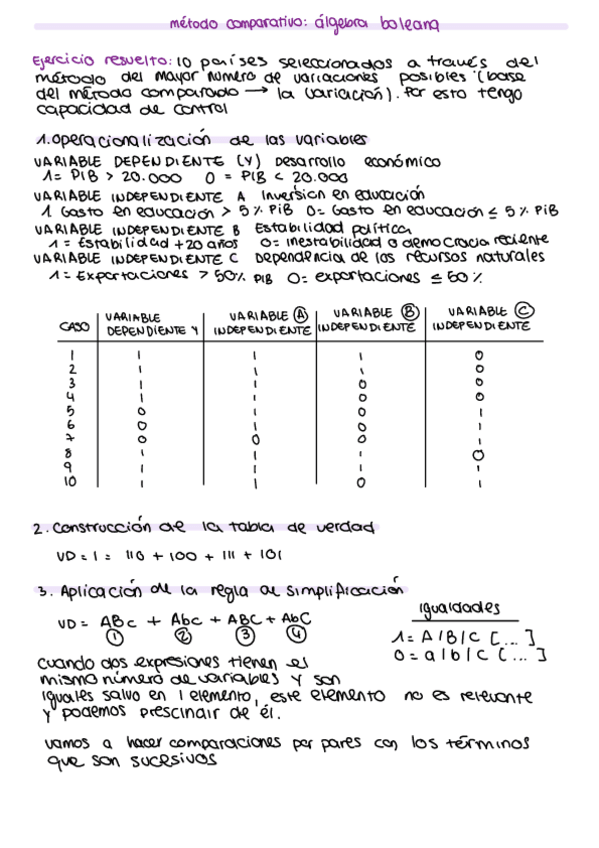 método comparativo: álgebra boleana
Ejercicio resuelto: 10 países seleccionados a través del
método del mayor número de variaciones posibles (base
del método comparado → la variación). Por esto tengo
capacidad de control
1. Operacionalización de las variables
VARIABLE DEPENDIENTE (Y) Desarrollo económico
1= PIB > 20.000 0 = PIB < 20.000
VARIABLE INDEPENDIENTE A Inversión en educación
1 Gasto en educación > 5% PIB 0= Gasto en educación ≤ 5% PIB
VARIABLE INDEPENDIENTE B Estabilidad política
1 = Estabilidad +20 años 0= inestabilidad o democracia reciente
VARIABLE INDEPENDIENTE C Dependencia de los recursos naturales
1= Exportaciones > 50% PIB 0= exportaciones ≤ 50%
CASO VARIABLE DEPENDIENTE Y VARIABLE A INDEPENDIENTE VARIABLE B INDEPENDIENTE VARIABLE C INDEPENDIENTE
1 1 1 1 0
2 1 1 1 0
3 1 1 0 0
4 1 1 0 0
5 0 1 0 1
6 0 1 0 1
7 0 0 0 1
8 1 1 1 0
9 1 1 1 1
10 1 1 0 1
2. Construcción de la tabla de verdad
VD = 1 = 110 + 100 + 111 + 101
3. Aplicación de la regla de simplificación
VD = ABc + Abc + ABC + AbC
1 2 3 4
igualdades
1= A/B/C [...]
0= a/b/c [...]
cuando dos expresiones tienen el
mismo número de variables y son
iguales salvo en 1 elemento, este elemento no es relevante
y podemos prescindir de él.
vamos a hacer comparaciones por pares con los términos
que son sucesivos